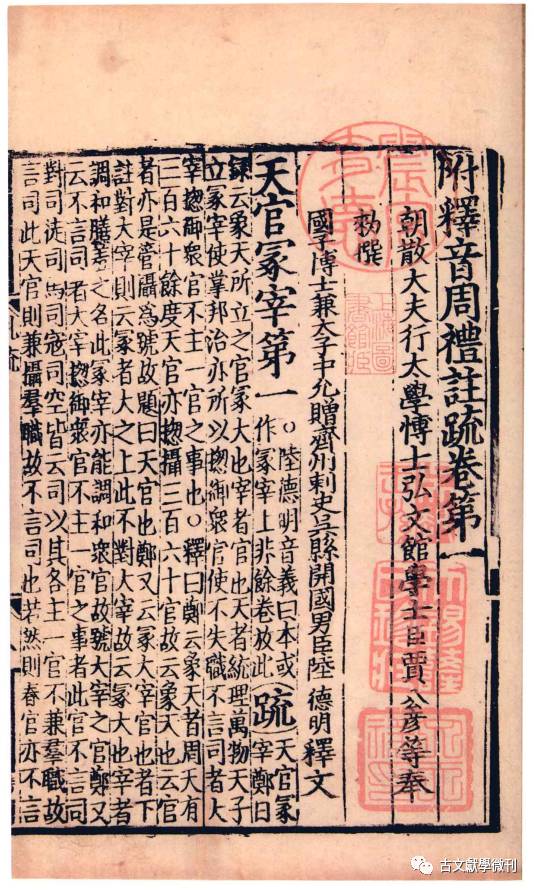 附釋音周禮註䟽卷第一
朝散大夫行太學博士弘文館學士臣賈公彥等奉
勑撰
國子博士兼太子中允贈齊州刺史吳縣開國男臣陸德明釋文
天官冢宰第一
○陸德明音義曰本或
作冢宰上非餘卷放此
疏
天官冢
宰鄭目
錄云象天所立之官冢大也宰者官也天者統理萬物天子
立冢宰使掌邦治亦所以揔御衆官使不失職不言司者大
宰揔御衆官不主一官之事也○釋曰鄭云象天者周天有
三百六十餘度天官亦揔攝三百六十官故云象天也云官
者亦是管攝爲號故題曰天官也鄭又云冢大宰官也者下
註對大宰則云冢者大之上此不對大宰故云冢大也宰者
調和膳羞之名此冢宰亦能調和衆官故號大宰之官鄭又
云不言司者大宰揔御衆官不主一官之事者此官不言司
對司徒司馬司寇司空皆云司以其各主一官不兼羣職故
言司此天官則兼攝羣職故不言司也若然則春官亦不言
上海圖
書館藏
古文獻學微刊